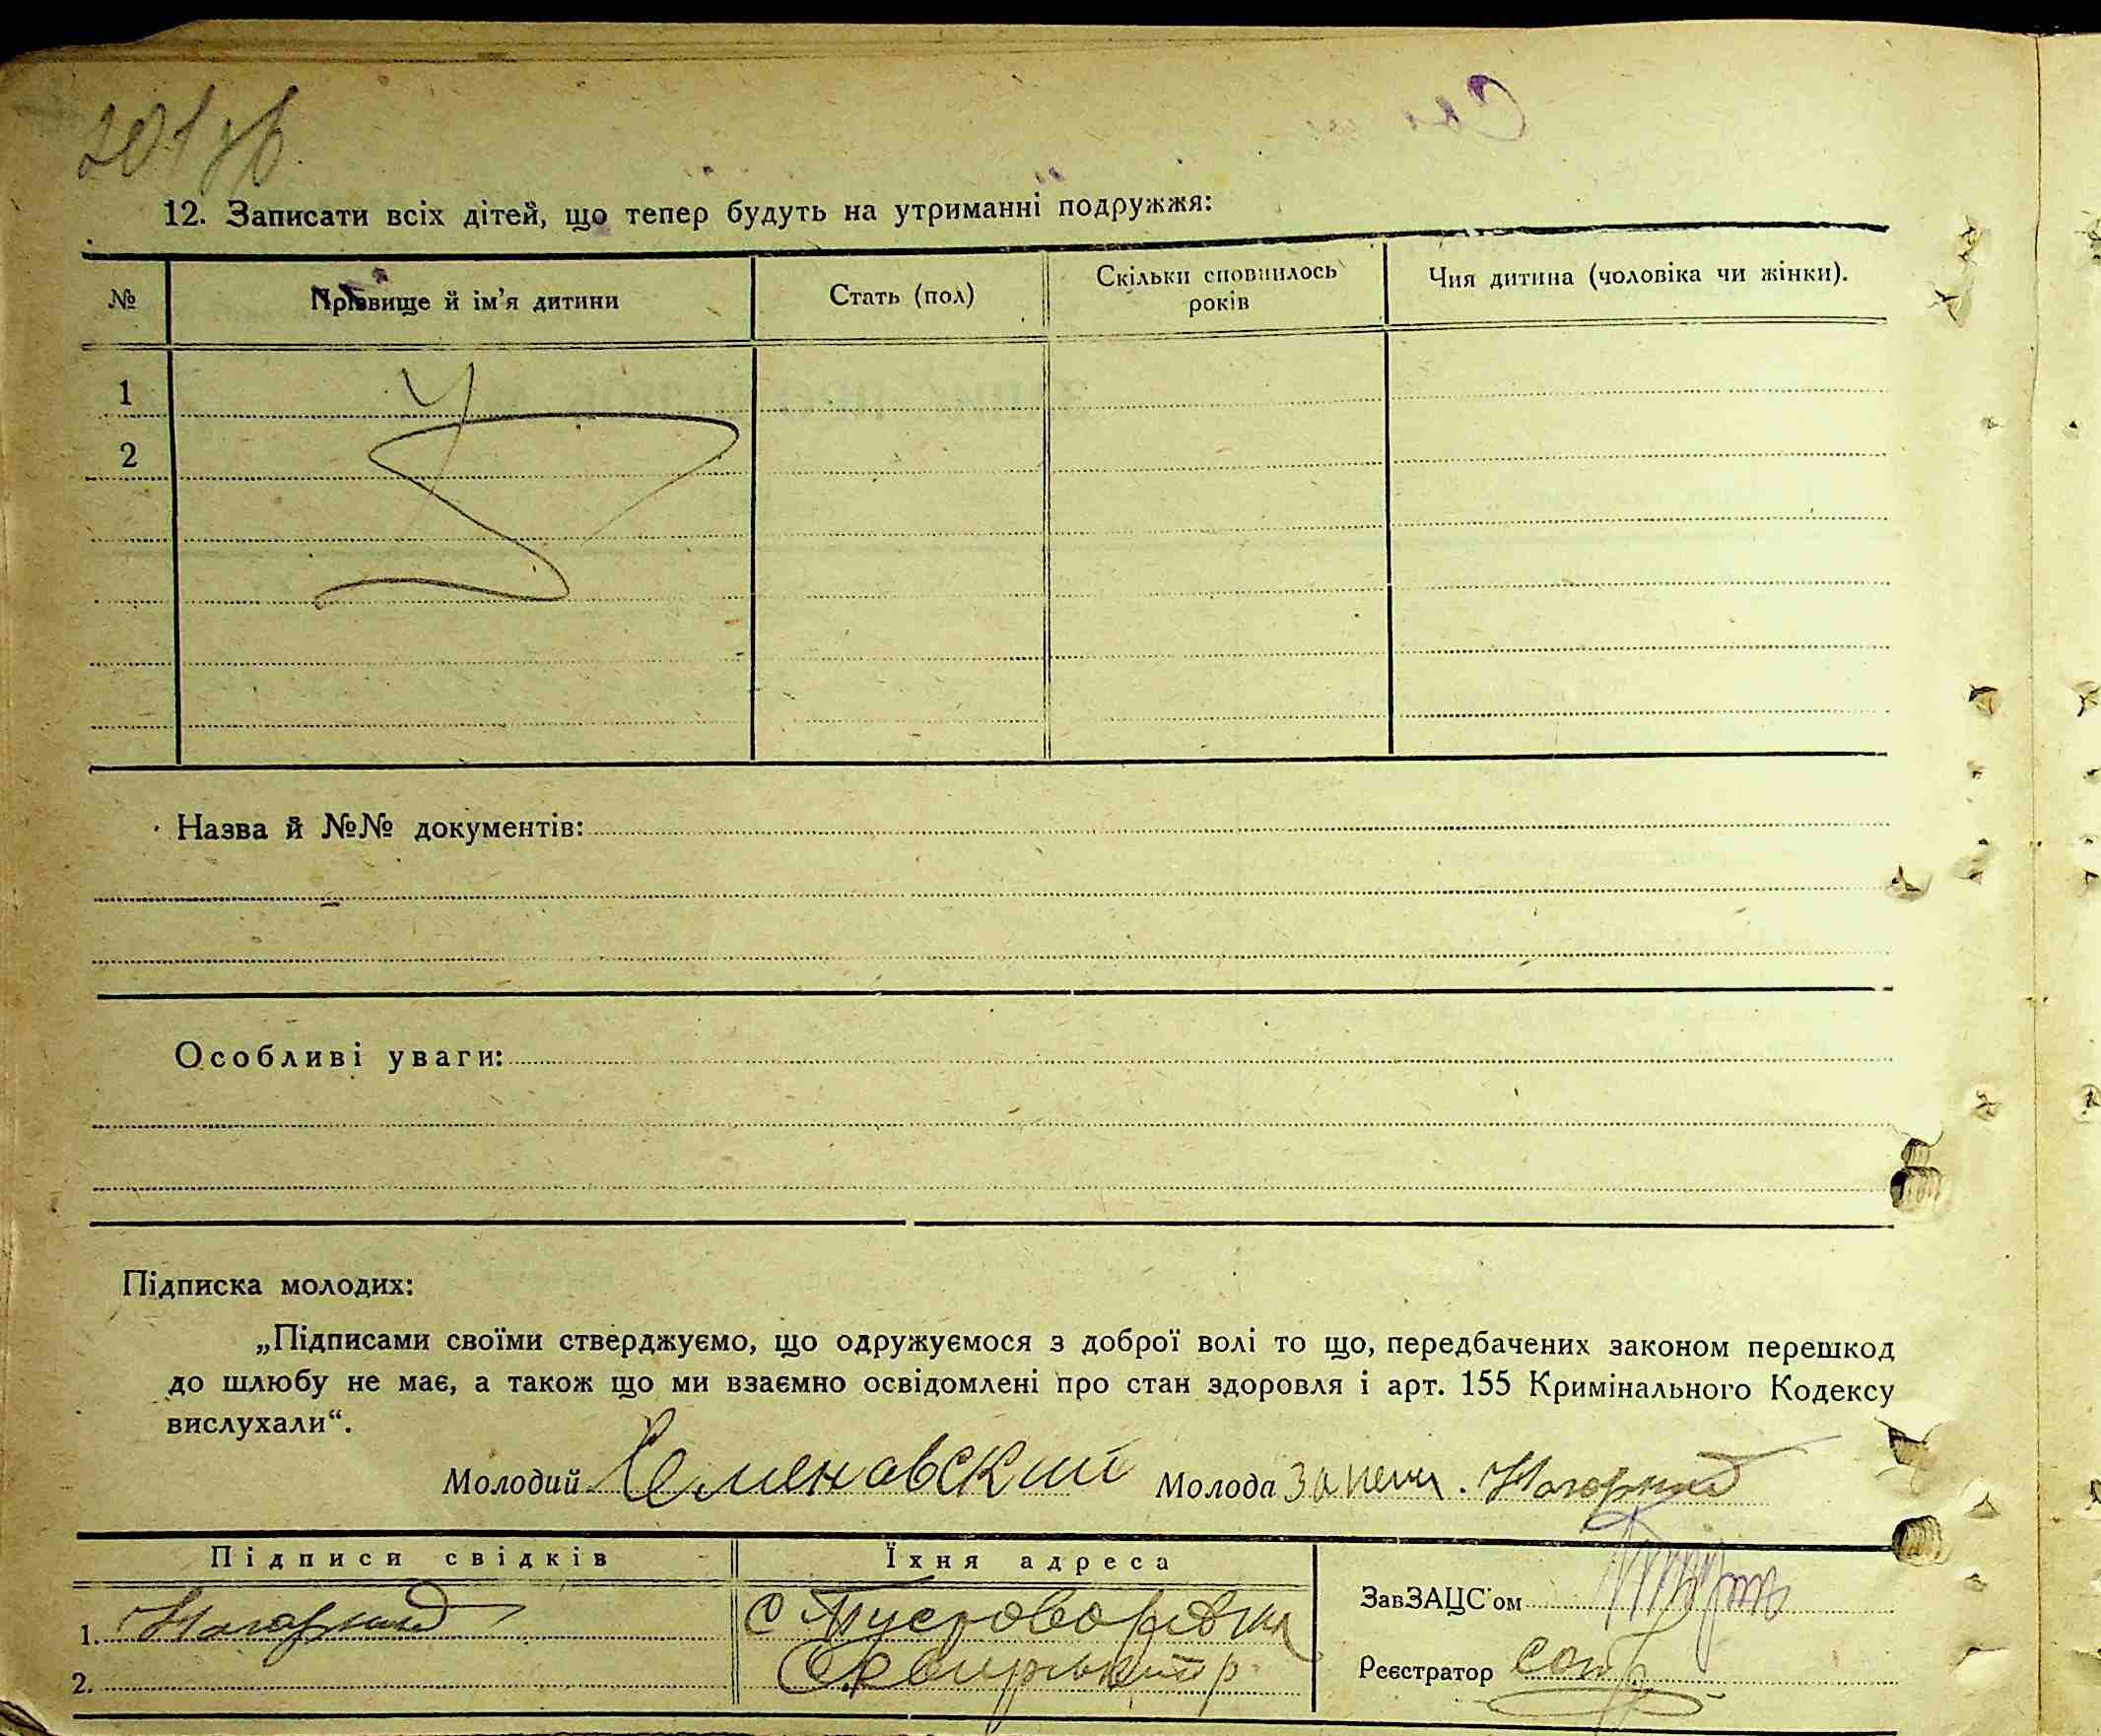 201 зв.
12. Записати всіх дітей, що тепер будуть на утриманні подружжя:
№
Прізвище й ім'я дитини
Стать (пол)
Скільки сповнилось
років
Чия дитина (чоловіка чи жінки).
1
2
Назва й №№ документів:
Особливі уваги:
Підписка молодих:
„Підписами своїми стверджуємо, що одружуємося з доброї волі то що, передбачених законом перешкод
до шлюбу не має, а також що ми взаємно освідомлені про стан здоровля і арт. 155 Кримінального Кодексу
вислухали“.
Молодий Семеновский Молода за непи. Нагорний
Підписи свідків
Їхня адреса
1. Нагорний
с Пустоварівка
2.
Сквирськ р
ЗавЗАЦС'ом
Реєстратор